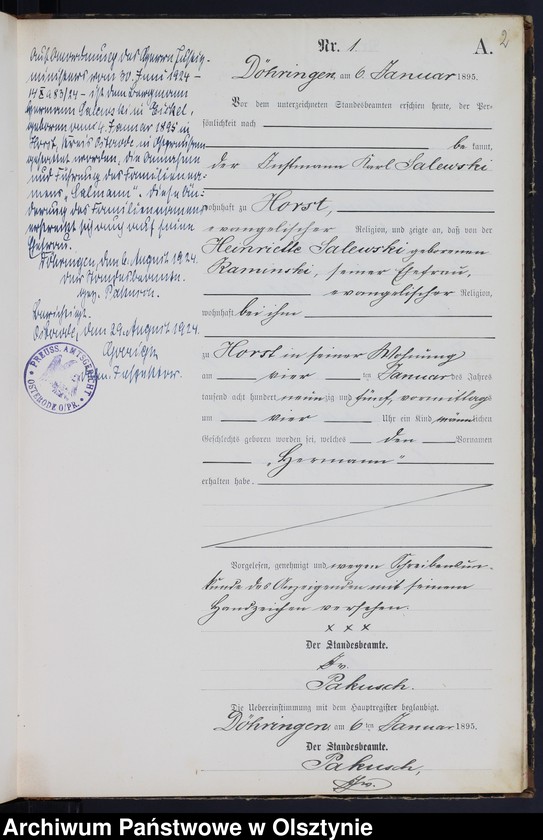 2
Nr. 1
A.
Döhringen, am 6. Januar 1895.
Vor dem unterzeichneten Standesbeamten erschien heute, der Per-
sönlichkeit nach
be kannt,
der Instmann Karl Salewski
wohnhaft zu Horst,
evangelischer Religion, und zeigte an, daß von der
Henriette Salewski geborenen
Raminski, seiner Ehefrau,
evangelischer Religion,
wohnhaft bei ihm
zu Horst in seiner Wohnung
am vier ten Januar des Jahres
tausend acht hundert neunzig und fünf, vormittags
um vier Uhr ein Kind männlichen
Geschlechts geboren worden sei, welches den Vornamen
„Hermann"
erhalten habe.
Vorgelesen, genehmigt und wegen Schreibensun-
kunde des Anzeigenden mit seinem
Handzeichen versehen.
x x x
Der Standesbeamte.
Pakusch.
Die Uebereinstimmung mit dem Hauptregister beglaubigt.
Döhringen, am 6ten Januar 1895.
Der Standesbeamte.
Pakusch,
Auf Anordnung des Herrn Justiz-
ministers vom 30. Juni 1924 –
ist dem Bergmann
Hermann Salewski in Eickel,
geboren am 4. Januar 1895 in
Horst, Kreis Osterode, in Ostpreußen
gestattet worden, die Annahme
und Führung des Familienna-
mens „Salmann". Diese Än-
derung des Familiennamens
erstreckt sich auch auf seine
Ehefrau.
Döhringen, den 6. August 1924.
Der Standesbeamte.
gez. Pakusch.
Osterode, den 29. August 1924.
PREUSS. AMTSGERICHT
OSTERODE O/PR.
Archiwum Państwowe w Olsztynie